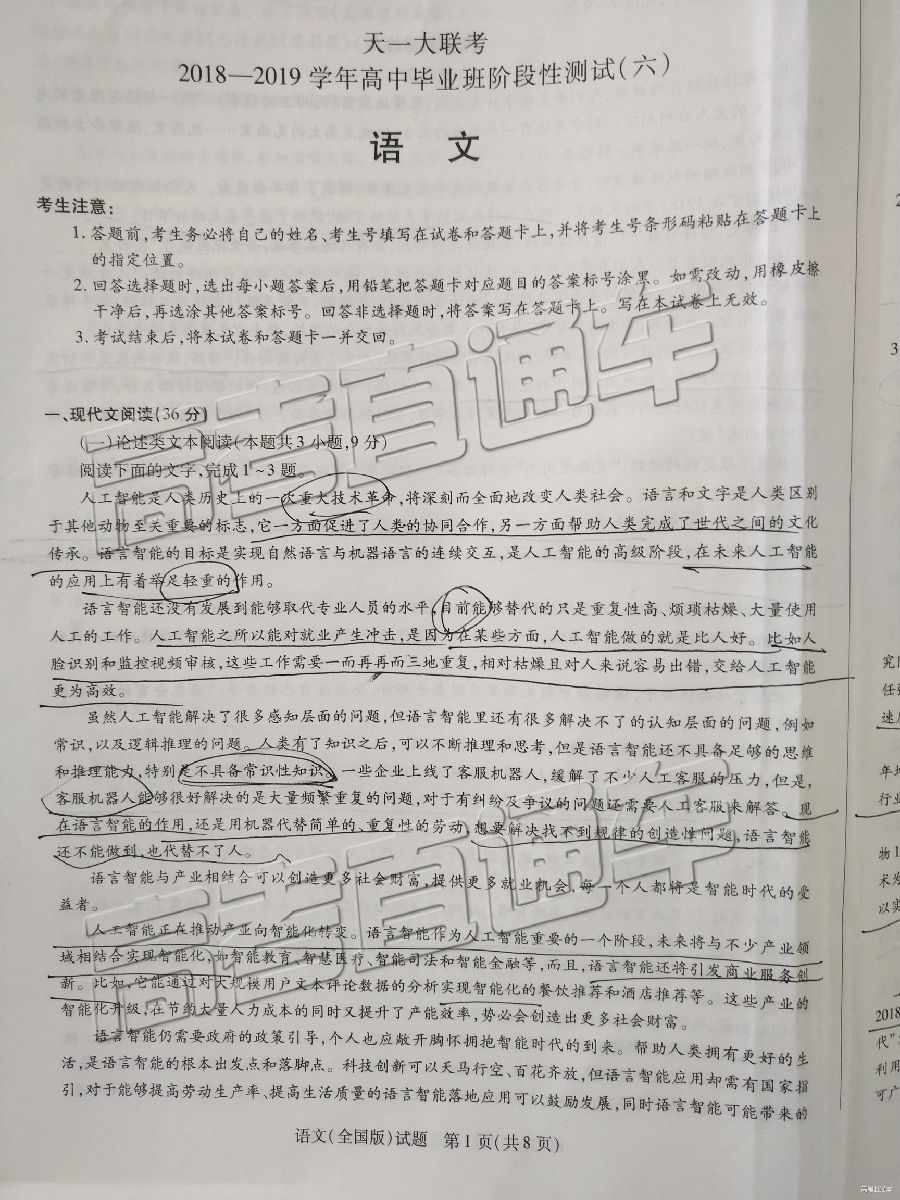 天一大联考
2018—2019学年高中毕业班阶段性测试(六)
语 文
考生注意:
1. 答题前,考生务必将自己的姓名、考生号填写在试卷和答题卡上,并将考生号条形码粘贴在答题卡上
的指定位置。
2. 回答选择题时,选出每小题答案后,用铅笔把答题卡对应题目的答案标号涂黑。如需改动,用橡皮擦
干净后,再选涂其他答案标号。回答非选择题时,将答案写在答题卡上。写在本试卷上无效。
3. 考试结束后,将本试卷和答题卡一并交回。
一、现代文阅读(36分)
(一)论述类文本阅读(本题共3小题,9分)
阅读下面的文字,完成1~3题。
人工智能是人类历史上的一次重大技术革命,将深刻而全面地改变人类社会。语言和文字是人类区别
于其他动物至关重要的标志,它一方面促进了人类的协同合作,另一方面帮助人类完成了世代之间的文化
传承。语言智能的目标是实现自然语言与机器语言的连续交互,是人工智能的高级阶段,在未来人工智能
的应用上有着举足轻重的作用。
语言智能还没有发展到能够取代专业人员的水平,目前能够替代的只是重复性高、烦琐枯燥、大量使用
人工的工作。人工智能之所以能对就业产生冲击,是因为在某些方面,人工智能做的就是比人好。比如人
脸识别和监控视频审核,这些工作需要一而再再而三地重复,相对枯燥且对人来说容易出错,交给人工智能
更为高效。
虽然人工智能解决了很多感知层面的问题,但语言智能里还有很多解决不了的认知层面的问题,例如
常识,以及逻辑推理的问题。人类有了知识之后,可以不断推理和思考,但是语言智能还不具备足够的思维
和推理能力,特别是不具备常识性知识。一些企业上线了客服机器人,缓解了不少人工客服的压力,但是,
客服机器人能够很好解决的是大量频繁重复的问题,对于有纠纷及争议的问题还需要人工客服来解答。现
在语言智能的作用,还是用机器代替简单的、重复性的劳动,想要解决找不到规律的创造性问题,语言智能
还不能做到,也代替不了人。
语言智能与产业相结合可以创造更多社会财富,提供更多就业机会,每一个人都将是智能时代的受
益者。
人工智能正在推动产业向智能化转变。语言智能作为人工智能重要的一个阶段,未来将与不少产业领
域相结合实现智能化,如智能教育、智慧医疗、智能司法和智能金融等,而且,语言智能还将引发商业服务创
新。比如,它能通过对大规模用户文本评论数据的分析实现智能化的餐饮推荐和酒店推荐等。这些产业的
智能化升级,在节约大量人力成本的同时又提升了产能效率,势必会创造出更多社会财富。
语言智能仍需要政府的政策引导,个人也应敞开胸怀拥抱智能时代的到来。帮助人类拥有更好的生
活,是语言智能的根本出发点和落脚点。科技创新可以天马行空、百花齐放,但语言智能应用却需有国家指
引,对于能够提高劳动生产率、提高生活质量的语言智能落地应用可以鼓励发展,同时语言智能可能带来的
语文(全国版)试题 第1页(共8页)
高考直通车
高考直通车
2
3
究
任
速
年
行业
物1
术为
以实
2018
代"
利用
可广